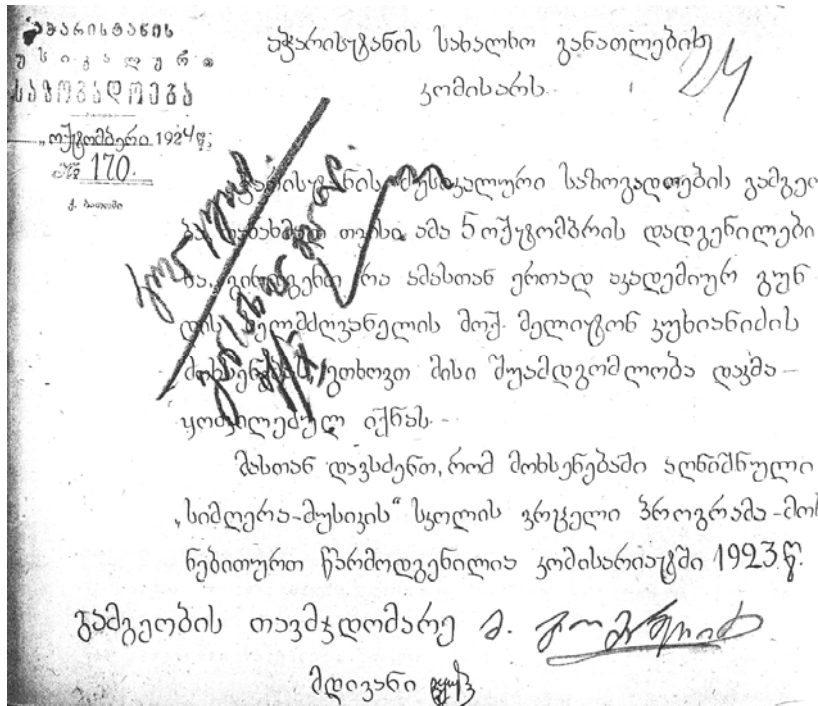 აჭარისტანის
მუსიკალური
საზოგადოება
„ ოქტომბერი 1924წ.
№ 170.
ქ. ბათომი
აჭარისტანის სახალხო განათლების
კომისარს.
24
აჭარისტანის მუსიკალური საზოგადოების გამგეო
ბა, თანახმად თვისი ამა 5 ოქტომბრის დადგენილები
სა, წარმოგიდგენთ რა ამასთან ერთად აკადემიურ გუნ
დის ხელმძღვანელის მოქ. მელიტონ კუხიანიძის
მოხსენებას, გთხოვთ მისი შუამდგომლობა დაკმა–
ყოფილებულ იქნას.–
მასთან დავსძენთ, რომ მოხსენებაში აღნიშნული
„სიმღერა–მუსიკის“ სკოლის ვრცელი პროგრამა–მოხ
ნებითურთ წარმოდგენილია კომისარიატში 1923 წ.
გამგეობის თავმჯდომარე
მდივანი